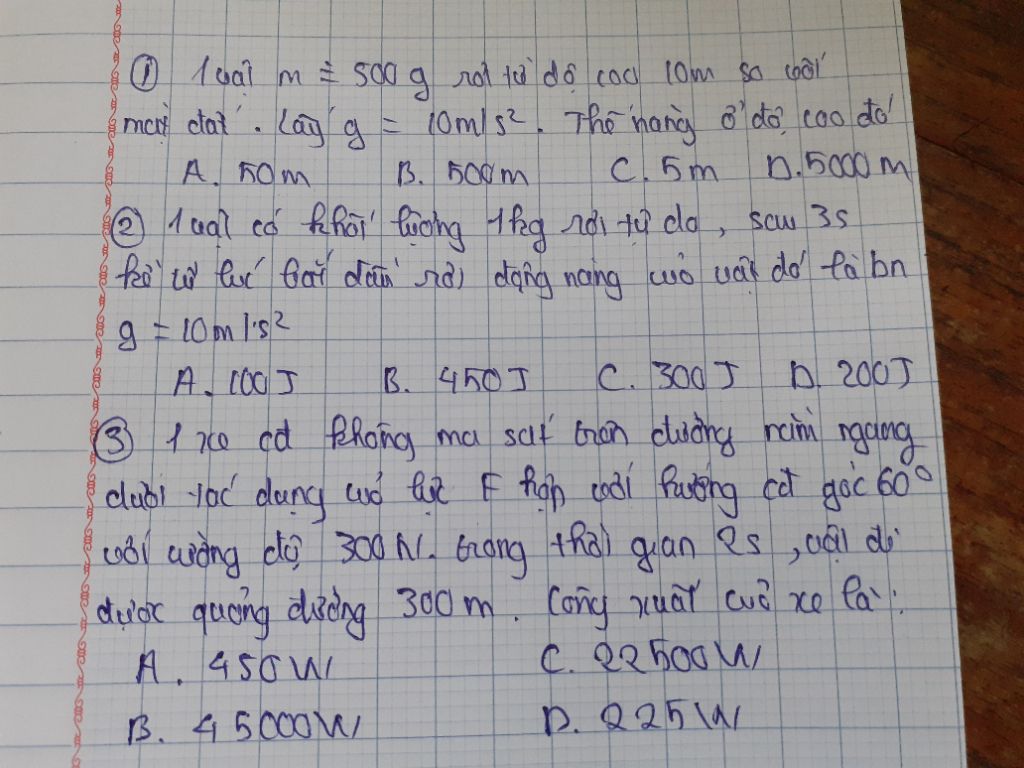 ① 1 vật m = 500 g rơi từ độ cao 10m so với
mặt đất. Lấy g = 10m/s². Thế năng ở độ cao đó
A. 50m B. 500m C. 5m D. 5000m
② 1 vật có khối lượng 1kg rơi tự do, sau 3s
kể từ lúc bắt đầu rơi động năng của vật đó là bn
g = 10m/s²
A. 100J B. 450J C. 300J D. 200J
③ 1 xe cđ không ma sát trên đường nằm ngang
dưới tác dụng của lực F hợp với hướng cđ góc 60°
với cường độ 300N. trong thời gian 2s, vật đi
được quảng đường 300m. Công xuất của xe là:
A. 450W C. 22500W
B. 45000W D. 225W